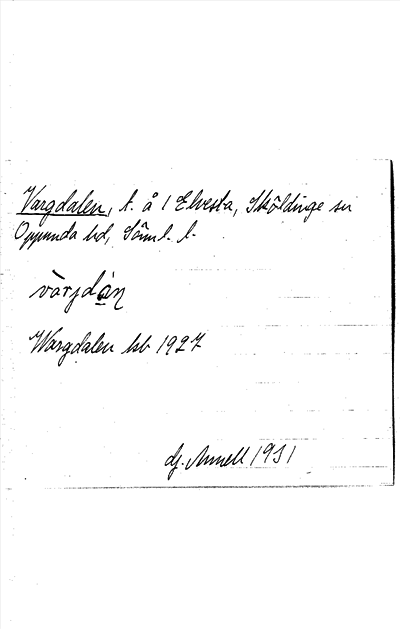 Vargdalen, t. å 1 Elvesta, Sköldinge sn
Oppunda hd, Söml. l.
Wargdalen kb 1927
dj. Annell 1931